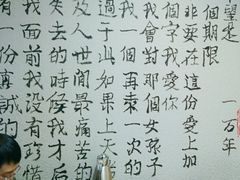 望是 一百年
個期限
非要在這份愛上加
個字我愛你
我會對那個女孩子
我一個再來一次的
過于此如果上天
及人世間最痛苦的
失去的時候我才后
我面前我沒有珍惜
有一份真誠的